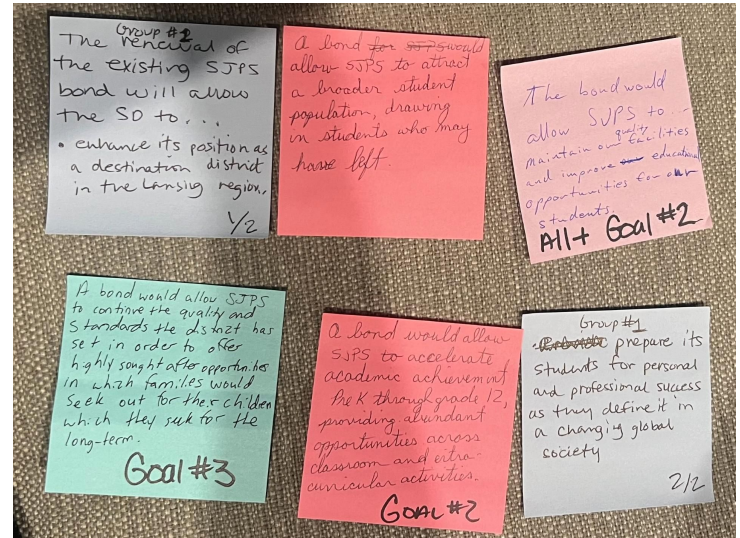 Group #1
The renewal of
the existing SJPS
bond will allow
the SD to...
• enhance its position as
a destination district
in the Lansing region.
1/2
A bond for SJPS would
allow SJPS to attract
a broader student
population, drawing
in students who may
have left.
The bond would
allow SJPS to...
maintain our quality facilities
and improve our educational
opportunities for our
students.
Alt Goal #2
A bond would allow SJPS
to continue the quality and
standards the district has
set in order to offer
highly sought after opportunities
in which families would
seek out for their children
which they seek for the
long-term.
Goal #3
A bond would allow
SJPS to accelerate
academic achievement
PreK through grade 12,
providing abundant
opportunities across
classroom and extra-
curricular activities.
GOAL #2
Group #1
prepare its
students for personal
and professional success
as they define it in
a changing global
society
2/2